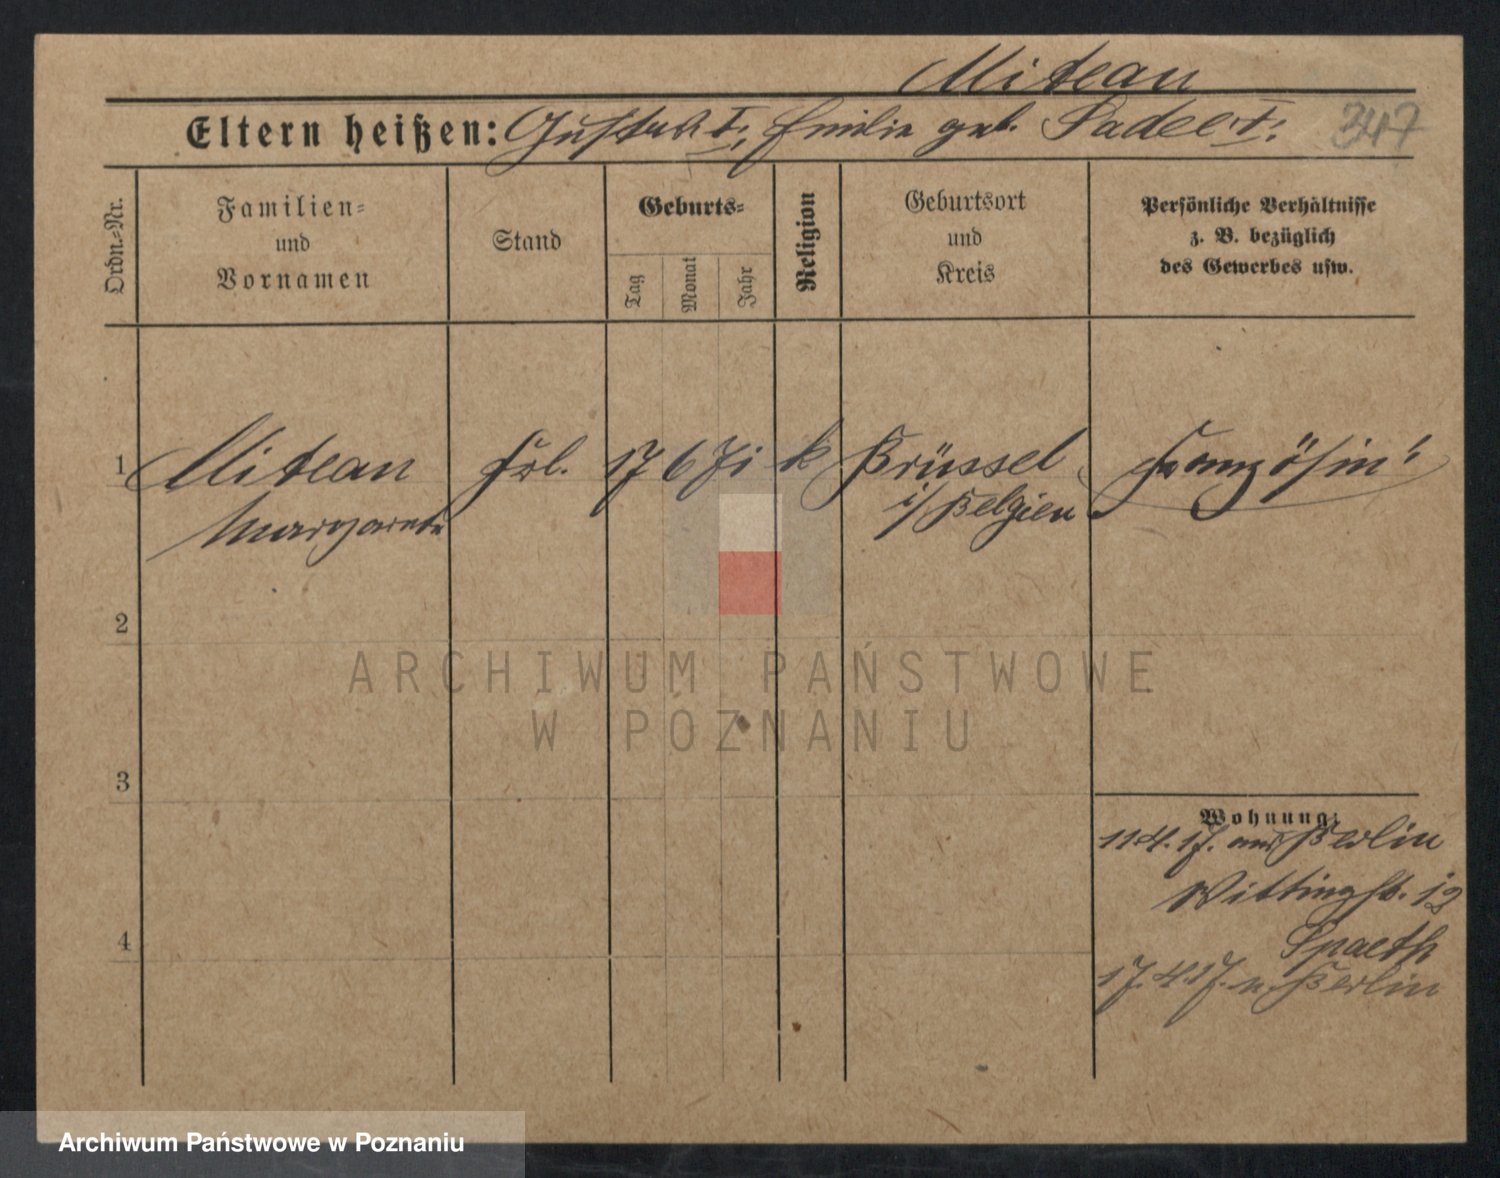 Mitean
Eltern heißen: Gustav †, Emilie geb. Sadee †.
347
Ordn.=Nr.
Familien=
und
Vornamen
Stand
Geburts=
Tag
Monat
Jahr
Religion
Geburtsort
und
Kreis
Persönliche Verhältnisse
z. B. bezüglich
des Gewerbes usw.
1 Mitean Frl. 17 6 71 k Brüssel Französin!
Margarete i/Belgien
2
ARCHIWUM PAŃSTWOWE
W POZNANIU
3
Wohnung:
11.4.17. aus Berlin
Wittingst. 12
Spaeth
4
17.4.17. n. Berlin
Archiwum Państwowe w Poznaniu